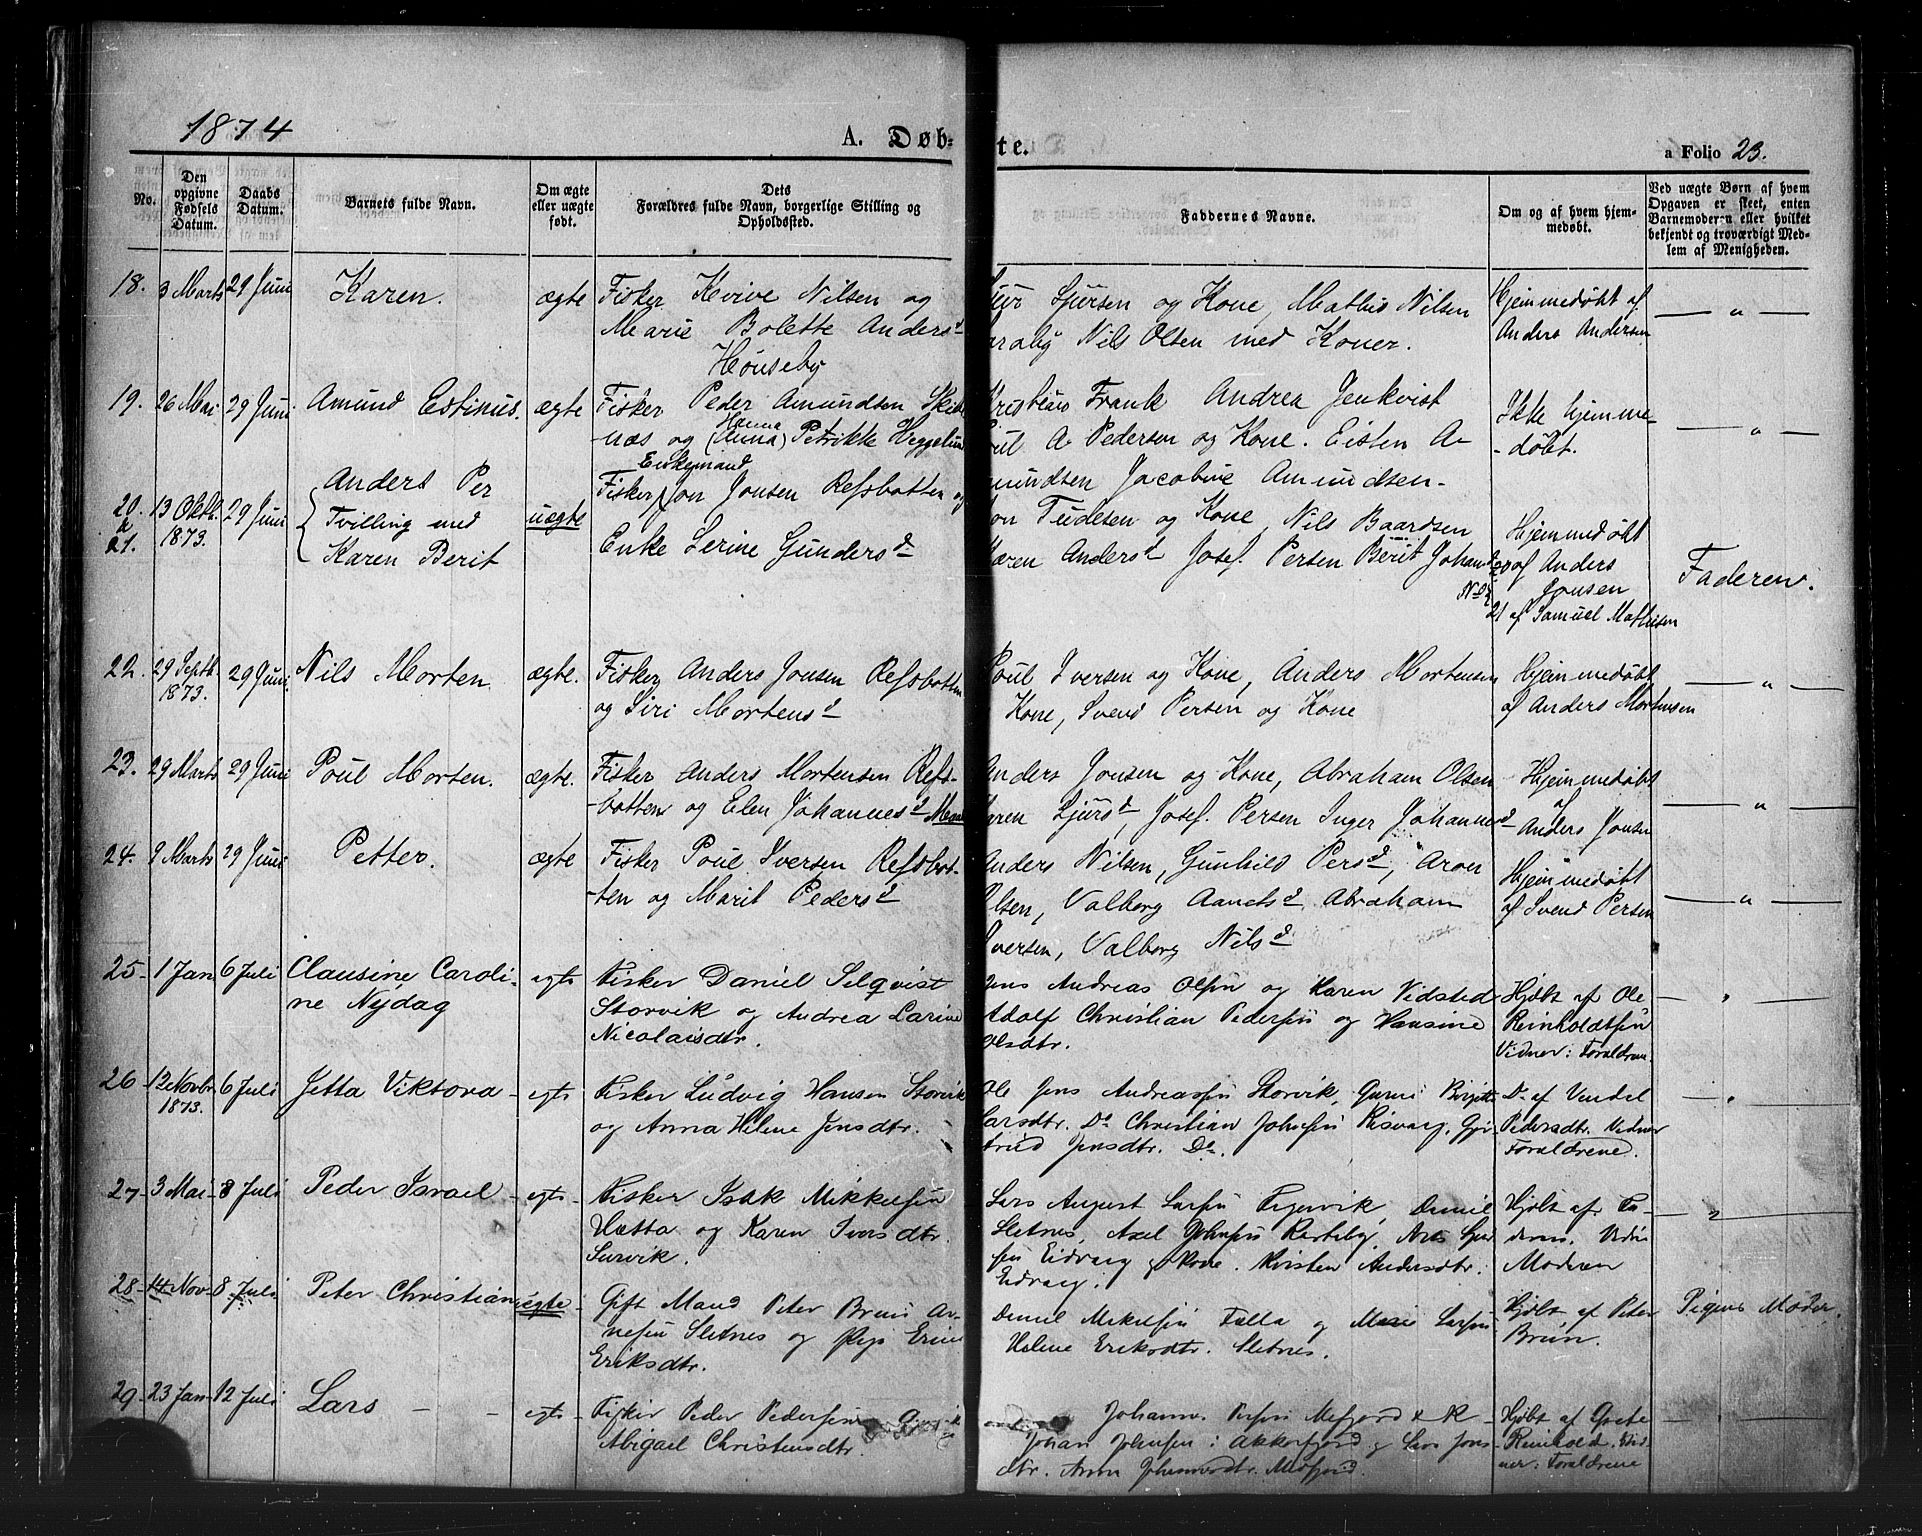 1874
A. Døb-
te.
a Folio 23.
No.
Den opgivne Fødsels Datum.
Daabs Datum.
Barnets fulde Navn.
Om ægte eller uægte født.
Dets Forældres fulde Navn, borgerlige Stilling og Opholdssted.
Faddernes Navne.
Om og af hvem hjemmedøbt.
Ved uægte Børn af hvem Opgaven er skeet, enten Barnemoderen eller hvilket bekjendt og troværdigt Medlem af Menigheden.
18. 3 Marts 29 Juni Karen. ægte Fisker Kvive Nilsen og
Marie Bolette Andersd
Houseby
Sjursen og Kone, Mathis Nilsen
Nils Olsen med Koner.
Hjemmedøbt af
Anders Andersen
— " —
19. 26 Mai 29 Juni Amund Estinus. ægte Fisker Peder Amundsen Skib-
Hanna
næs og (Anna) Petrikke Heggelund
Frank Andrea Jenkvist
A Pedersen og Kone. Eisten A-
mundsen Jacobine Amundsen.
Ikke hjemme-
-døbt.
— " —
20. & 21. 13 Oktb. 1873. 29 Juni Anders Per
Tvilling med
Karen Berit
uægte
Enkemand
Fisker Jon Jonsen Refsbotten og
Enke Serine Gundersd
Tudesen og Kone, Nils Baardsen
Karen Andersd Josef. Persen Berit Johansd
Hjemmedøbt
No 20 af Anders
Jonsen
21 af Samuel Mathisen
Faderen.
22. 29 Septb. 1873. 29 Juni. Nils Morten. ægte. Fisker Anders Jonsen Refsbotten
og Siri Mortensd
Poul Iversen og Kone, Anders Mortensen
Kone, Svend Persen og Kone
Hjemmedøbt
af Anders Mortensen
— " —
23. 29 Marts 29 Juni Poul Morten. ægte. Fisker Anders Mortensen Refs-
botten og Elen Johannesd
Anders Jonsen og Kone, Abraham Olsen
Karen Sjursd, Josef. Persen Inger Johannesd
Hjemmedøbt
af
Anders Jonsen
— " —
24. 9 Marts 29 Juni Petter. ægte Fisker Poul Iversen Refsbot-
-ten og Marit Pedersd
Anders Nilsen, Gunhild Persd, Aron
Olsen, Valborg Aanetsd Abraham
Iversen, Valborg Nilsd
Hjemmedøbt
af Svend Persen
— " —
25- 1 Jan 6 Juli Clausine Caroli-
ne Nyjdag
egte Fisker Daniel Selqvist
Storvik og Andrea Larine
Nicolaisdtr.
Jens Andreas Olsen og Karen Vidsted
Adolf Christian Pedersen og Hansine
Olsdtr.
Hjdbt af Ole
Reinholdtsen
Vidner: Forældrene.
— " —
26 12 Novbr 1873. 6 Juli Jetta Viktora - egte Fisker Ludvig Hansen Storvik
og Anna Helene Jensdtr.
Ole Jens Andreassen Storvik, Gurine Birgitte
Larsdtr. Do Christian Johnsen Risvaag, Gjer-
trud Jensdtr. Do.
Do af Vendel
Pedersdtr. Vidner
Forældrene.
— " —
27- 3 Mai- 8 Juli Peder Israel - egte - Fisker Isak Mikkelsen
Hætta og Karen Iversdtr.
Survik.
Lars August Larsen Daniel
Sletnes, Axel Johnsen
Eidvaag og Kone. Kirsten Andersdtr.
Eidvaag.
Hjdbt af Fa-
deren. Vidne
Moderen
28- 14 Nov. 8 Juli Peter Christian uegte - Gift Mand Peter Bruun Ar-
nesen Sletnes og Pige Erine
Eriksdtr.
Daniel Mikelsen Falla og Larsen
Helene Eriksdtr. Sletnes.
Hjdbt af Peter
Bruun.
Pigens Moder.
29- 23 Jan- 12 Juli Lars - - egte - Fisker Peder Pedersen
Abigael Christensdtr.
Johannes Persen Mefjord & K
Johan Johnsen i Akkarfjord og Jons-
dtr. Anna Johannesdtr. Mefjord.
Hjdbt af Grete
Reinhold. Vid-
ner: Forældrene